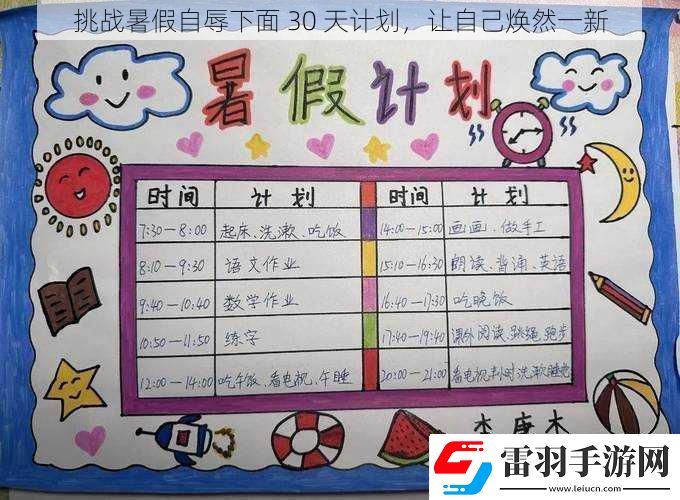 挑战暑假自辱下面 30 天计划，让自己焕然一新
暑假计划
时间 计划 时间 计划
7:30—8:00 起床、洗漱、吃饭 14:00—15:00 画画、做手工
8:10—9:30 语文作业 15:10—16:30 朗读、背诵、英语
9:40—10:40 数学作业 16:40—17:30 吃晚饭
10:50—11:50 练字 17:40—19:40 课外阅读、跳绳、跑步
12:00—14:00 吃午饭、看电视、午睡 20:00—21:00 看电视半小时洗漱睡觉
雷羽手游网
www.leiyucn.com